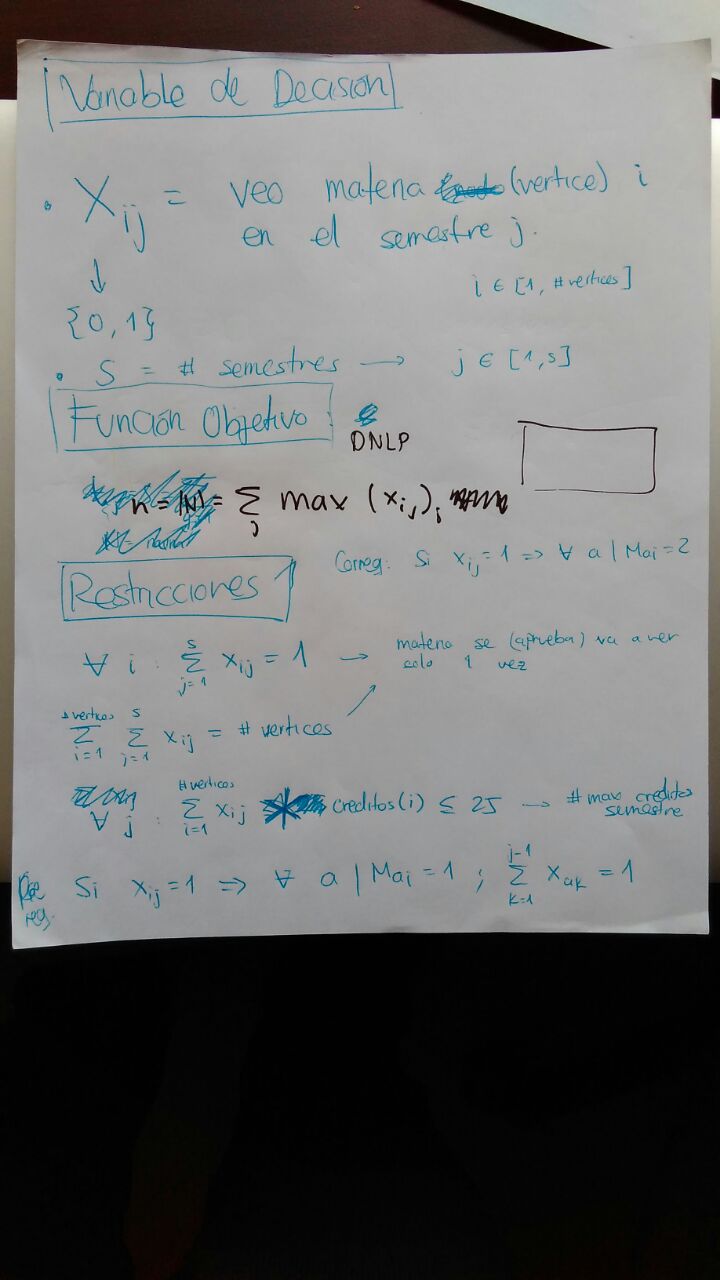 Variable de Decisión
• Xij = veo materia (vertice) i
en el semestre j.
↓
{0,1}
i ∈ [1, #vertices]
• S = # semestres → j ∈ [1,s]
Función Objetivo:
DNLP
n = |N| = Σj max (xij)i
Correq: Si xij=1 => ∀ a | Mai=2
Restricciones
∀ i : Σ(j=1..s) xij = 1 → materia se (aprueba) va a ver
solo 1 vez
Σ(i=1..#vertices) Σ(j=1..s) xij = # vertices
∀ j : Σ(i=1..#vertices) xij * creditos(i) ≤ 25 → # max creditos
semestre
Pre
req. Si xij=1 => ∀ a | Mai=1 ; Σ(k=1..j-1) xak = 1